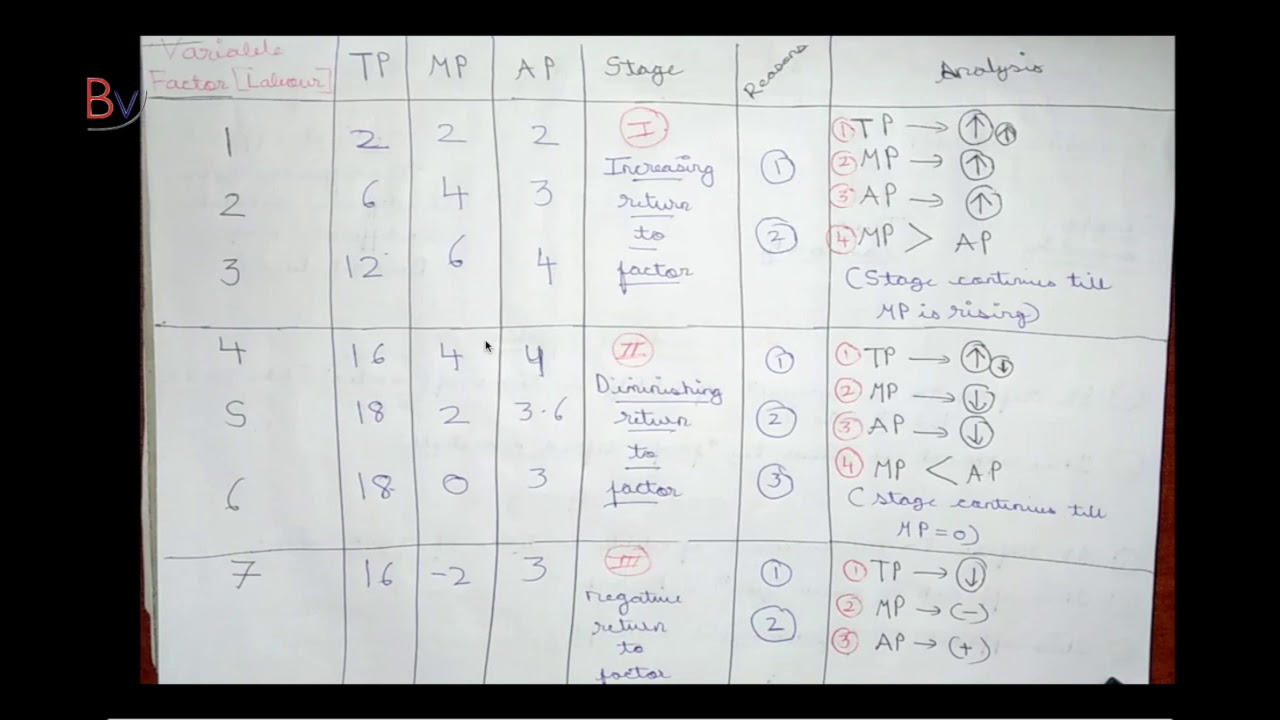 Variable
Factor [Labour] TP MP AP Stage Reasons Analysis
Bv
1 2 2 2 I ① TP → ↑ ↑
Increasing ① ② MP → ↑
2 6 4 3 return ③ AP → ↑
to ② ④ MP > AP
3 12 6 4 factor (Stage continues till
MP is rising)
4 16 4 4 II ① ① TP → ↑ ↓
Diminishing ② MP → ↓
5 18 2 3.6 return ② ③ AP → ↓
to ④ MP < AP
6 18 0 3 factor ③ (stage continues till
MP = 0)
7 16 -2 3 III ① ① TP → ↓
negative ② MP → (-)
return ② ③ AP → (+)
to
factor